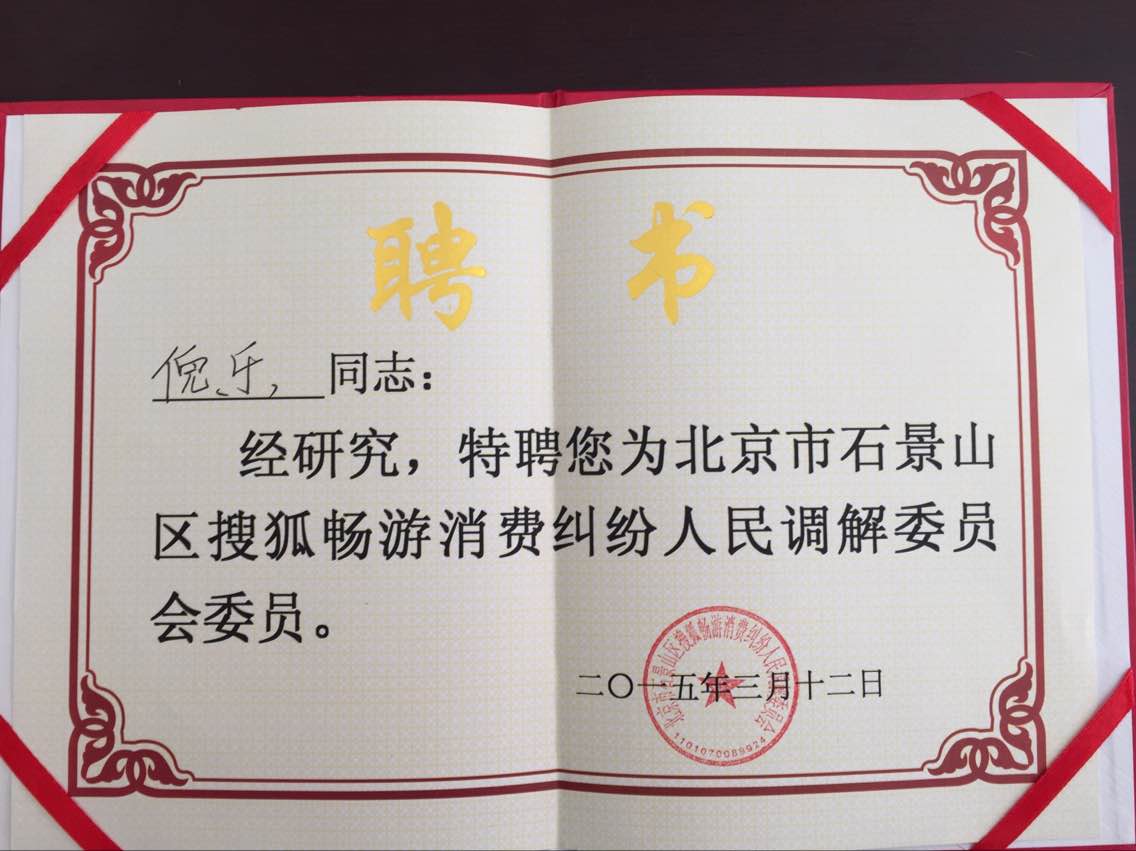 聘书
倪乐 同志：
经研究，特聘您为北京市石景山
区搜狐畅游消费纠纷人民调解委员
会委员。
北京市石景山区搜狐畅游消费纠纷人民调解委员会
二〇一五年三月十二日
1101070089924